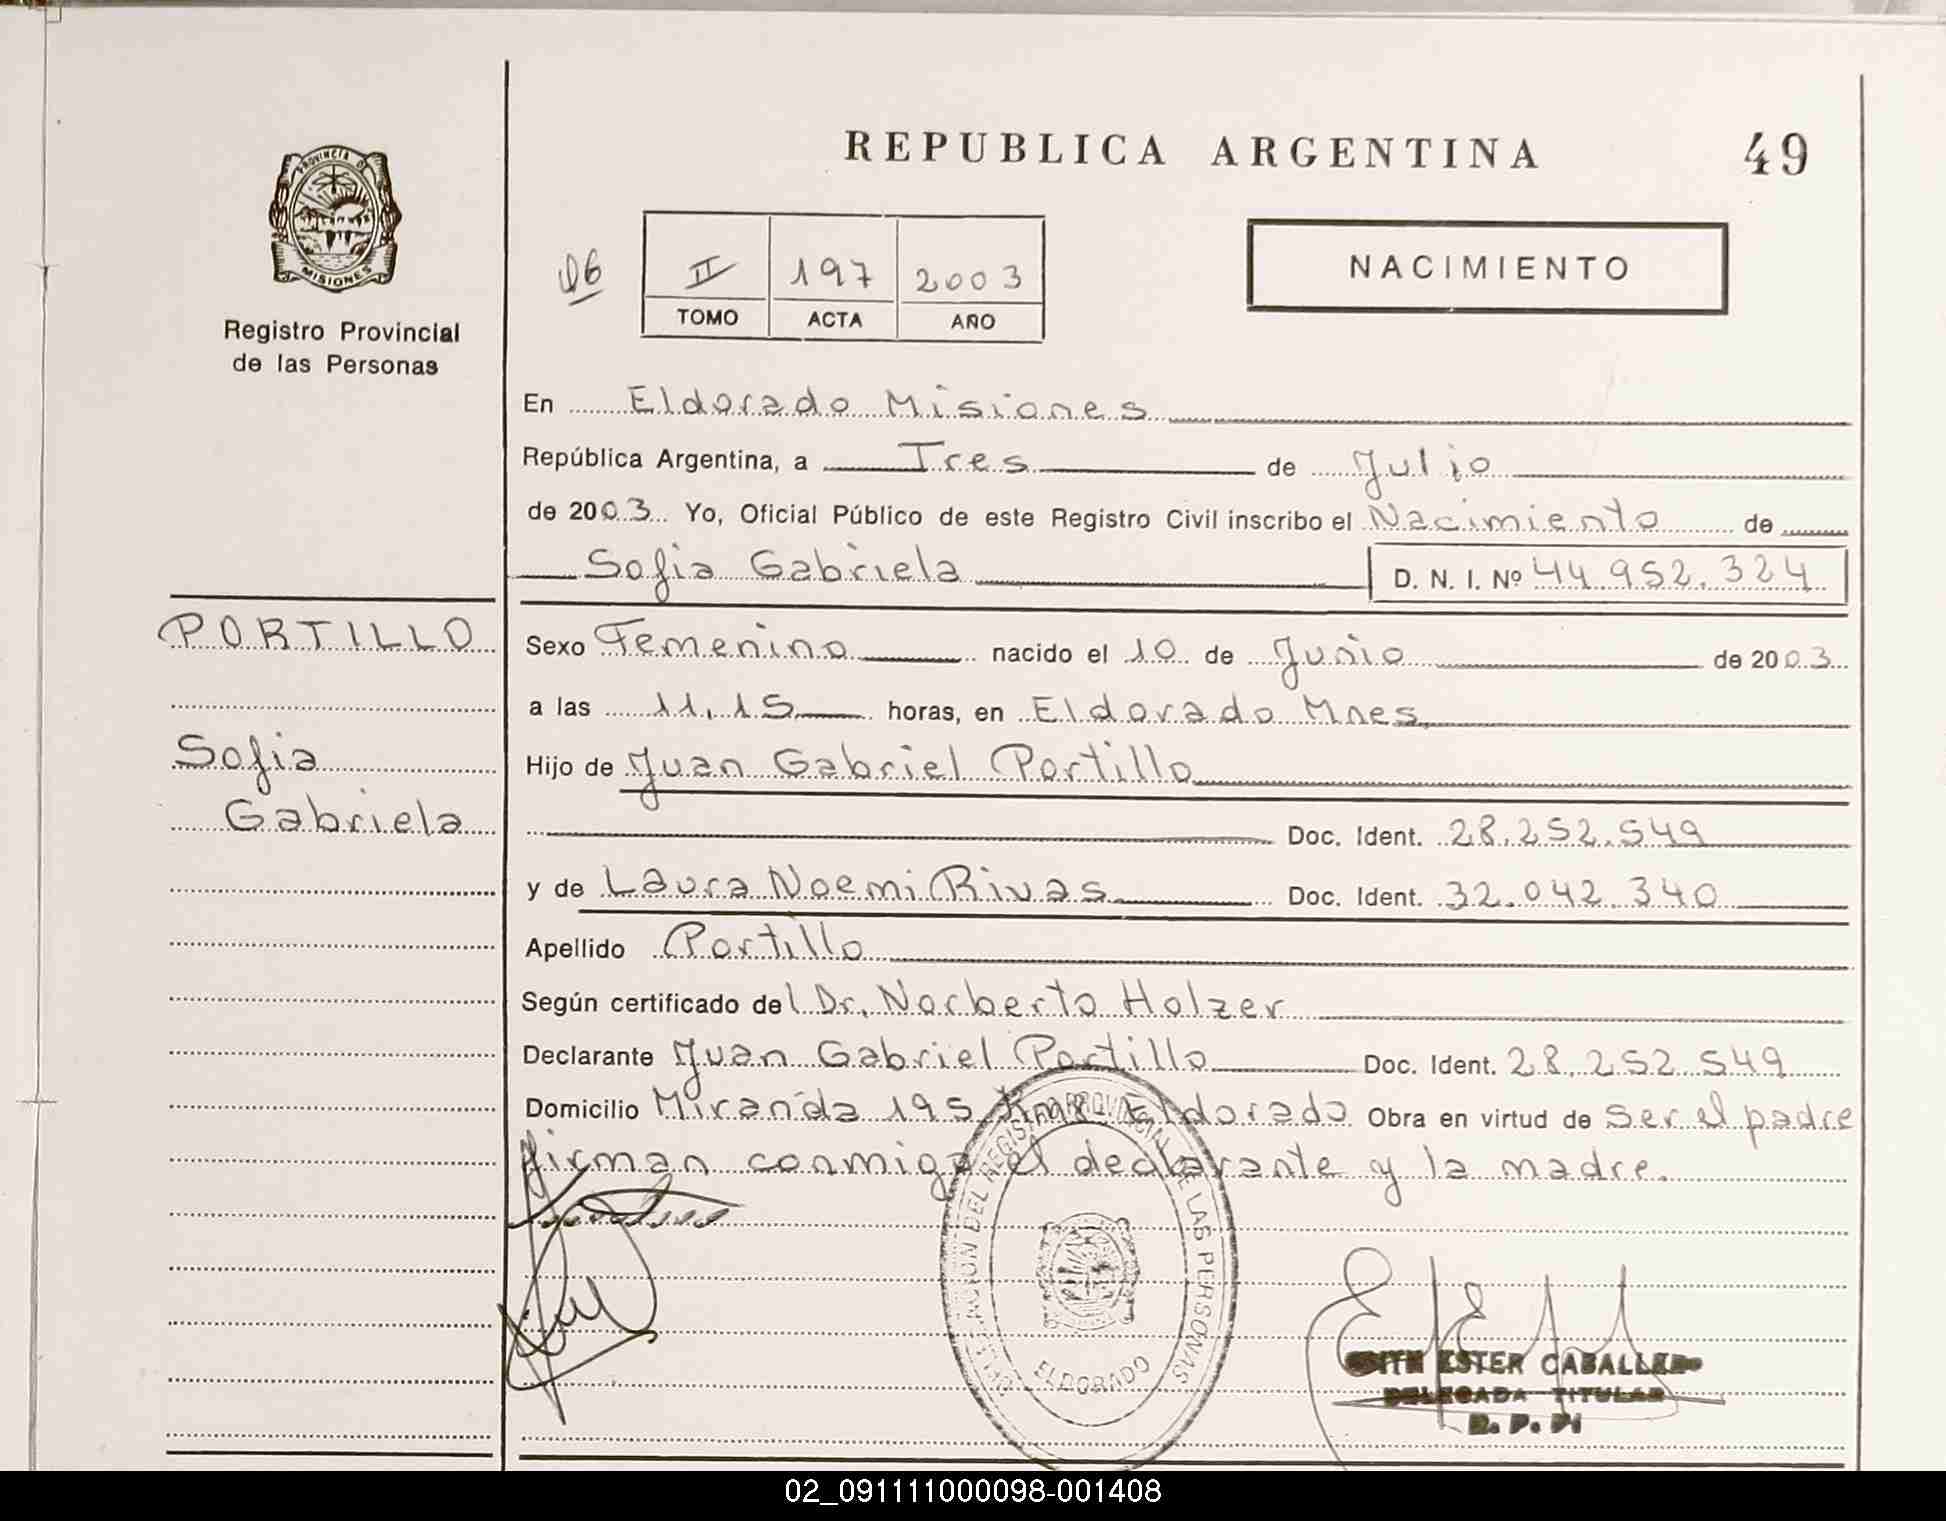 REPUBLICA ARGENTINA
49
PROVINCIA DE
MISIONES
Registro Provincial
de las Personas
II 197 2003
TOMO ACTA AÑO
NACIMIENTO
En Eldorado Misiones
República Argentina, a Tres de Julio
de 2003 Yo, Oficial Público de este Registro Civil inscribo el Nacimiento de
Sofia Gabriela D. N. I. Nº 44.952.324
PORTILLO
Sofia
Gabriela
Sexo Femenino nacido el 10 de Junio de 2003
a las 11,15 horas, en Eldorado Mnes
Hijo de Juan Gabriel Portillo
Doc. Ident. 28.252.549
y de Laura Noemi Rivas Doc. Ident. 32.042.340
Apellido Portillo
Según certificado del Dr. Norberto Holzer
Declarante Juan Gabriel Portillo Doc. Ident. 28.252.549
Domicilio Miranda 195 Km8 Eldorado Obra en virtud de Ser el padre
firman conmigo el declarante y la madre.
DEL REGISTRO PROVINCIAL DE LAS PERSONAS
ELDORADO
ESTER CABALLERO
DELEGADA TITULAR
02_091111000098-001408